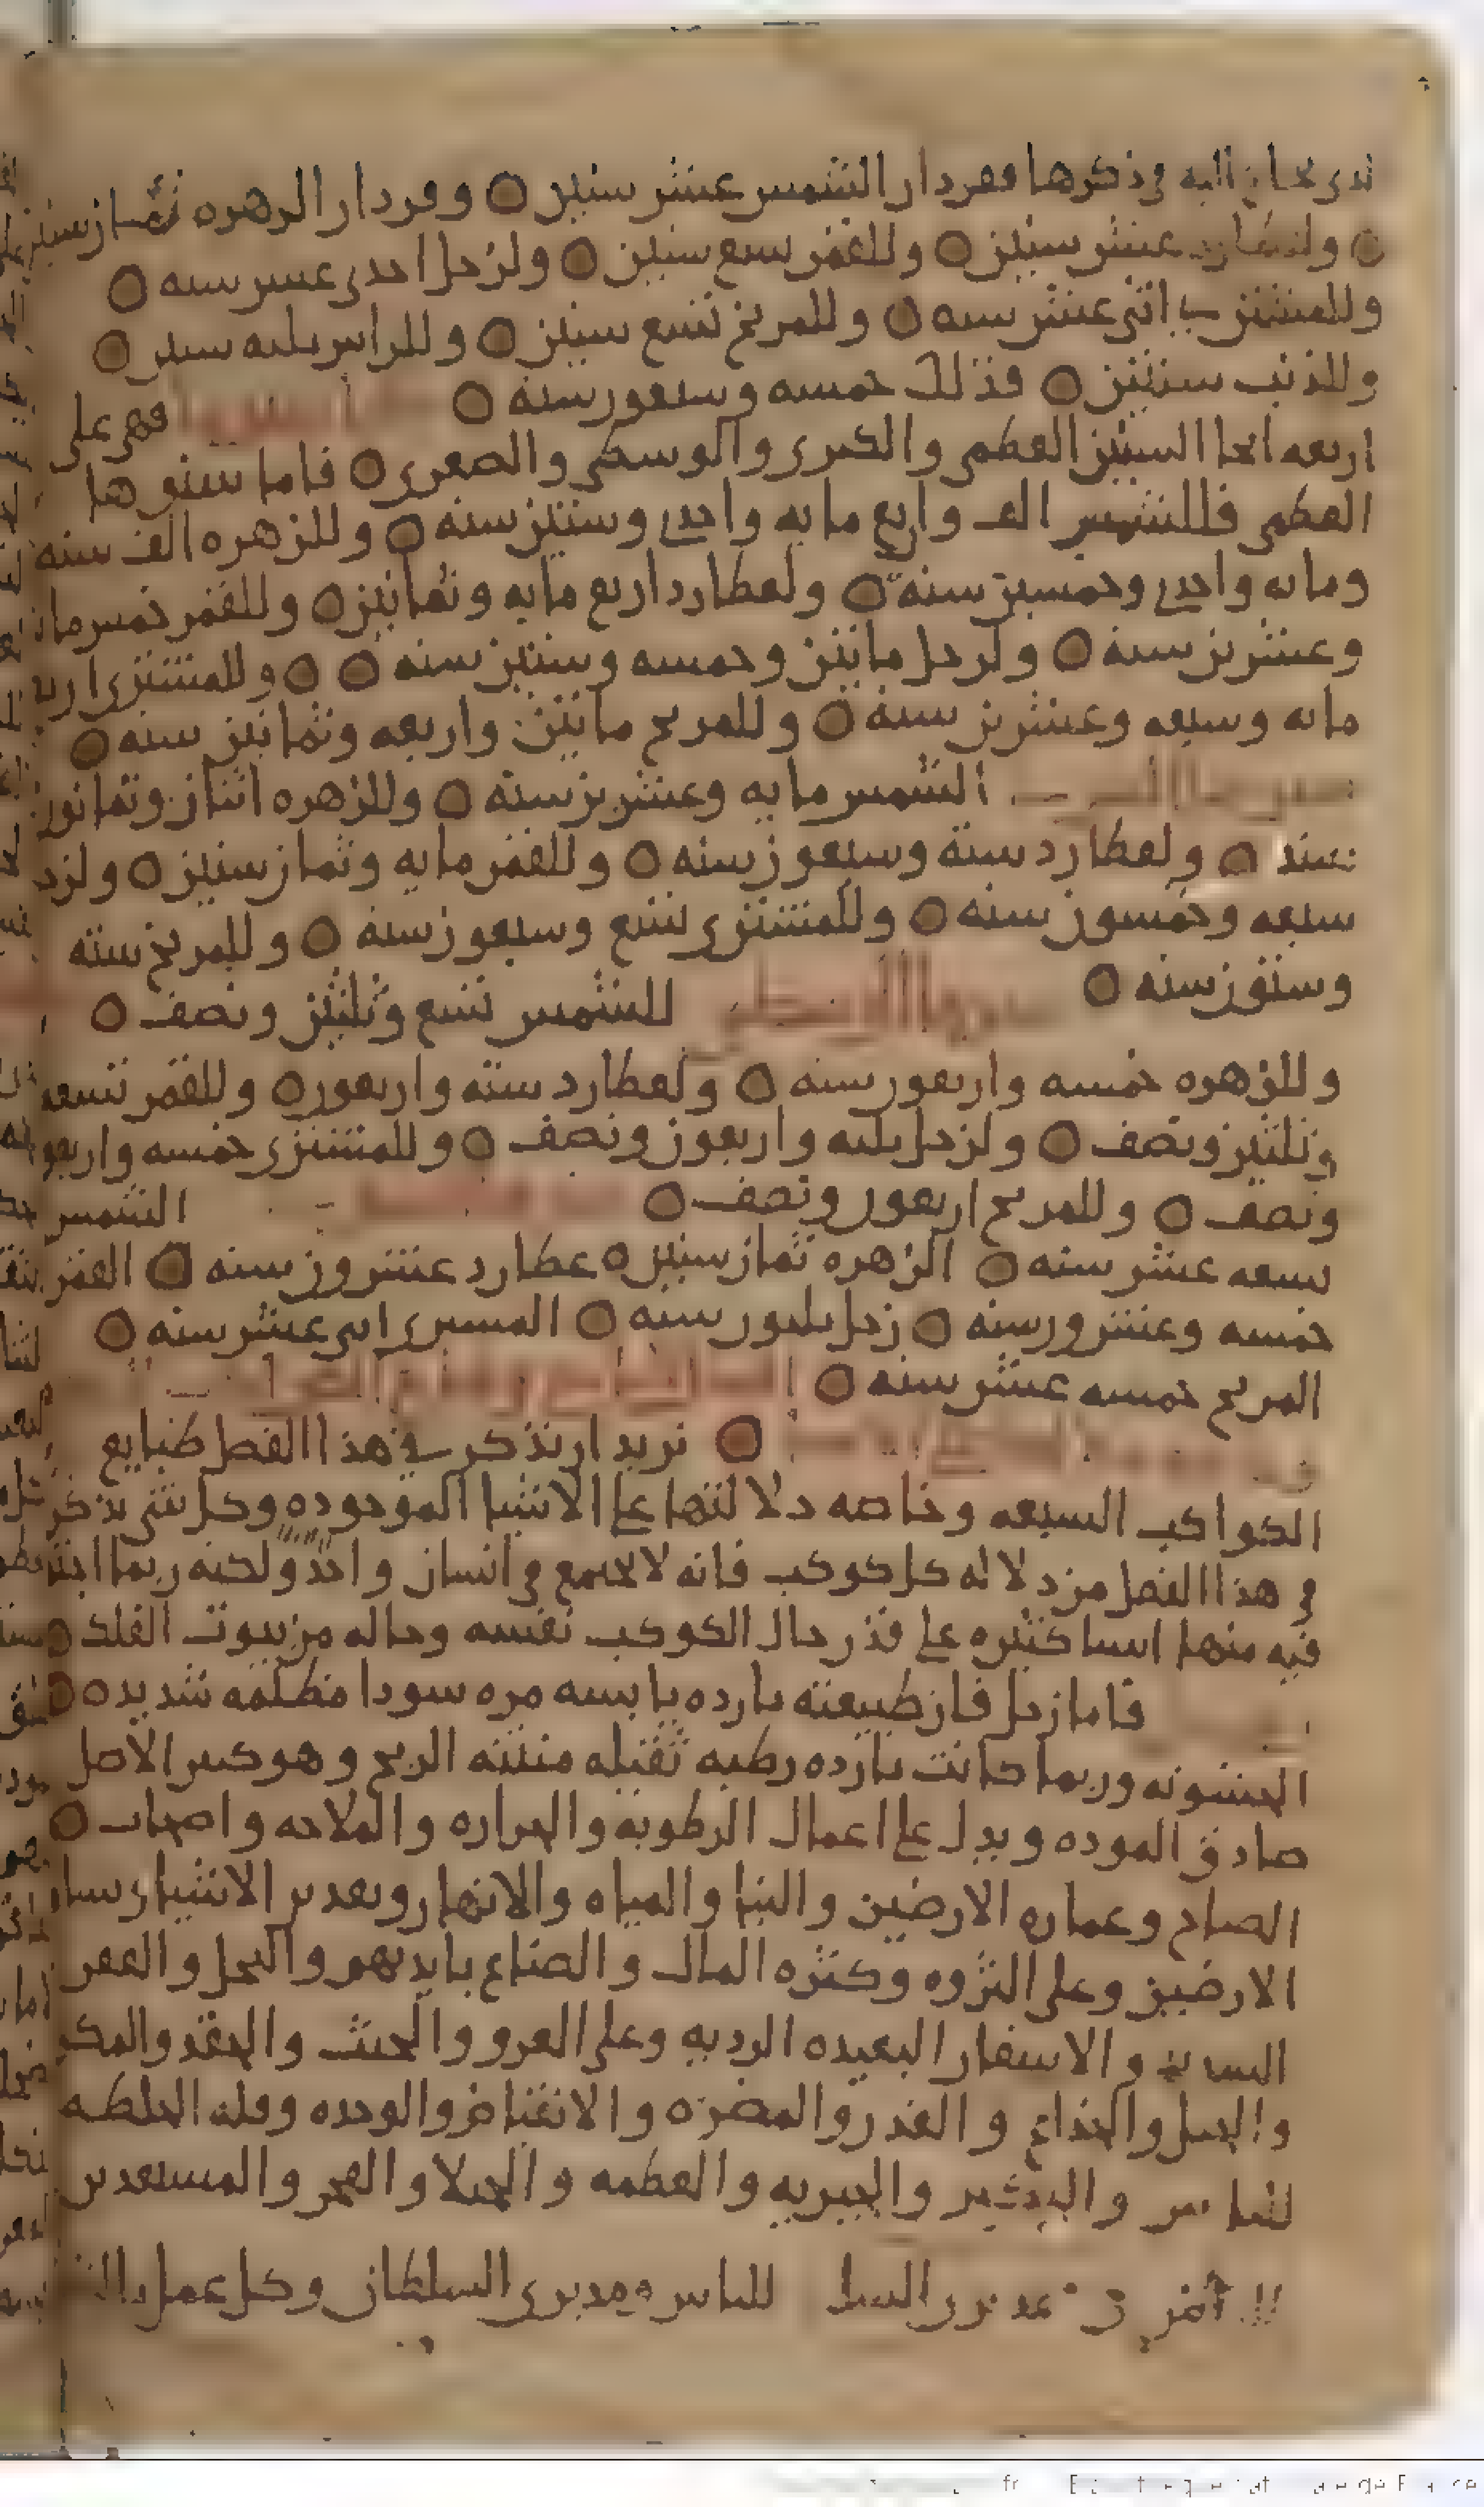 فى ذكرها ففردار الشمس عشر سنين ○ وفردار الزهره ثمان سنين
○ ولعطارد عشر سنين ○ وللقمر سبع سنين ○ ولزحل احدى عشر سنه ○
وللمشترى اثنى عشر سنه ○ وللمريخ تسع سنين ○ وللراس ثلثه سنين ○
وللذنب سنتين ○ فذلك خمسه وسبعون سنه ○ فهى على
اربعه انحا السنين العظمى والكبرى والوسطى والصغرى ○ فاما سنوها
العظمى فللشمس الف واربع مايه واحدى وستين سنه ○ وللزهره الف سنه
ومايه واحدى وخمسين سنه ○ ولعطارد اربع مايه وثمانين ○ وللقمر خمس مايه
وعشرين سنه ○ ولزحل مايتين وخمسه وستين سنه ○ ○ وللمشترى اربع
مايه وسبعه وعشرين سنه ○ وللمريخ مايتين واربعه وثمانين سنه ○
الشمس مايه وعشرين سنه ○ وللزهره اثنان وثمانون
سنه ○ ولعطارد سته وسبعون سنه ○ وللقمر مايه وثمان سنين ○ ولزحل
سبعه وخمسون سنه ○ وللمشترى تسع وسبعون سنه ○ وللمريخ سته
وستون سنه ○ للشمس تسع وثلثين ونصف ○
وللزهره خمسه واربعون سنه ○ ولعطارد سته واربعون ○ وللقمر تسعه
وثلثين ونصف ○ ولزحل ثلثه واربعون ونصف ○ وللمشترى خمسه واربعون
ونصف ○ وللمريخ اربعون ونصف ○ الشمس
سعه عشر سنه ○ الزهره ثمان سنين ○ عطارد عشرون سنه ○ القمر
خمسه وعشرون سنه ○ زحل ثلثون سنه ○ المشترى اثنى عشر سنه ○
المريخ خمسه عشر سنه ○
○ نريد ان نذكر فى هذا الفصل طبايع
الكواكب السبعه وخاصه دلالتها على الاشيا الموجوده وكل شى نذكر
فى هذا الفصل من دلاله كل كوكب فانه لا يجتمع فى انسان واحد ولكنه ربما
فيه منها اشيا كثيره على قدر حال الكوكب نفسه وحاله من بيوت الفلك ○
فاما زحل فان طبيعته بارده يابسه مره سودا مظلمه شديده ○
الخشونه وربما كانت بارده رطبه ثقيله منتنه الريح وهو كبير الاصل
صادق الموده ويدل على اعمال الرطوبه والحراره والملاحه واصحاب ○
الصباح وعماره الارضين والبنا والمياه والانهار وتقدير الاشيا
الارضين وعلى الثروه وكثره المال والصناع بايديهم والبخل والفقر
والاسفار البعيده الرديه وعلى الغرو والخبث والحقد والمكر
والخداع والغدر والمضره والانقباض والوحده وقله الخلطه
والجبريه والعظمه والخيلا والفخر والمستعبدين
للناس ومدبرى السلطان وكل عمل